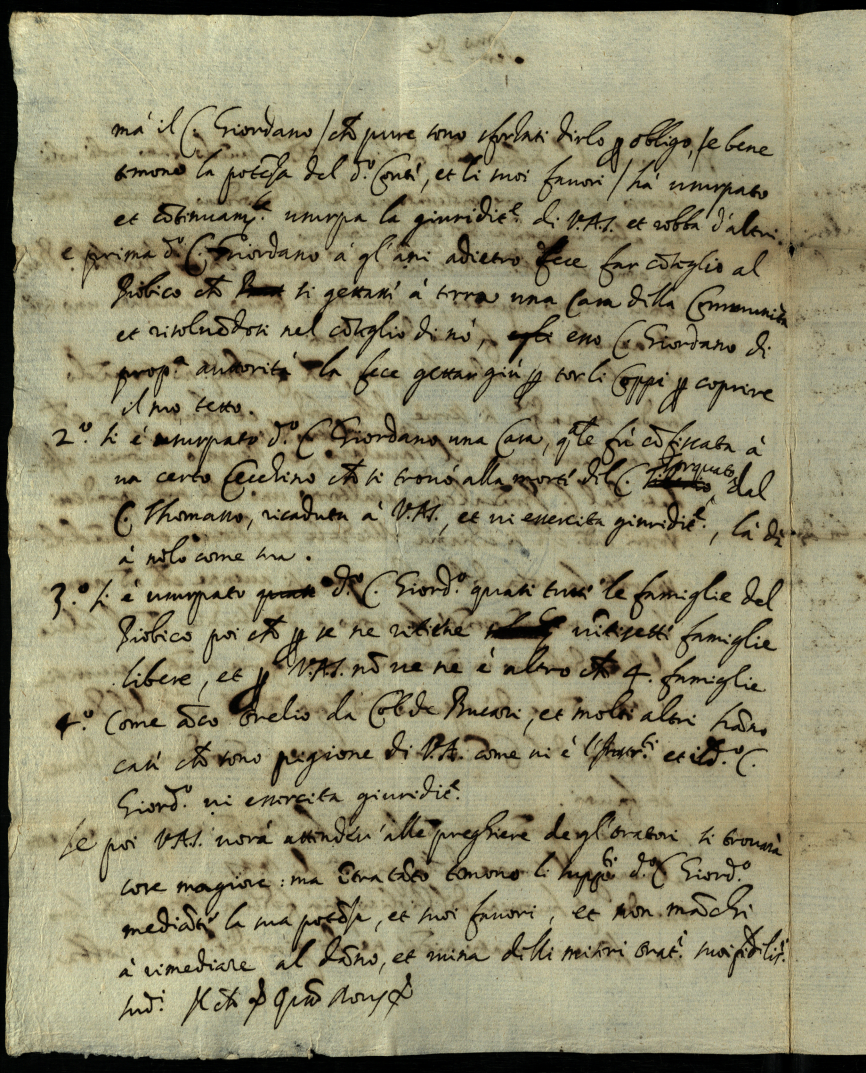 ma il C. Giordano / ch̃ pure sono sforzati dirlo ꝑ obligo, se bene
temono la potẽza del d.º Conte, et li suoi favori / hà usurpato
et cõtinuamẽ.te usurpa la giuridit.e di V.A.S. et robba d'altri.
e prima d.º C. Giordano à gl'ãni adietro fece far cõseglio al
Piobico ch̃ si gettasse à terra una Casa della Comunità
et risolvẽdosi nel cõseglio di nò, esso C. Giordano di
prop.a auttorità la fece gettar giù ꝑ tor li Coppi ꝑ coprire
il suo tetto.
2.º si è usurpato d.º C. Giordano una Casa, q.ale fù cõfiscata à
un certo Cecchino ch̃ si trovò alla morte del C. Torquato, dal
C. Thomasso, ricaduta à V.A.S., et vi essercita giuridit.e, la dà
à nolo come sua.
3.º si è usurpato d.º C. Giord.º quasi tutte le famiglie del
Piobico poi ch̃ ꝑ sè ne ritiene vẽtisette famiglie
libere, et ꝑ V.A.S. nõ ve ne è altro ch̃ 4. famiglie
4.º Come ãco Orelio da Col de Bucari, et molti altri hãno
case ch̃ sono pigione di V.A. come vi è et il d.º C.
Giord.º vi essercita giuridit.e
Se poi V.A.S. vorà attender' alle preghiere degl'oratori si trovarà
cose magiore: ma ĩtra tãto temono li supp.ti d.º C. Giord.º
mediãte la sua potẽza, et suoi favori, et non mãchi
à rimediare al dãno, et ruina delli miseri orat.i suoi fidelis.i
sud.i